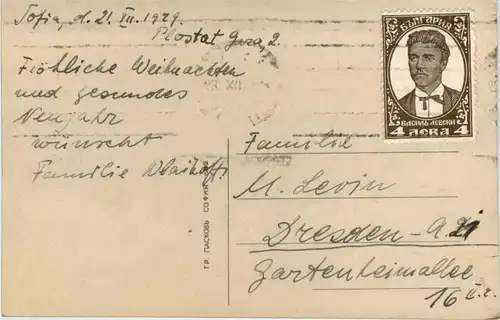 Sofia, d. 21. XII. 1929.
Plostat 2.
Fröhliche Weihnachten
und gesundes
Neujahr
wünscht
Familie
БЪЛГАРИЯ
ВАСИЛЪ ЛЕВСКИ
4 ЛЕВА 4
23. XII.
ГР. ПАСКОВЪ СОФИЯ
Familie
M. Levin
Dresden-A.
Gartenheimallee
16 II. r.